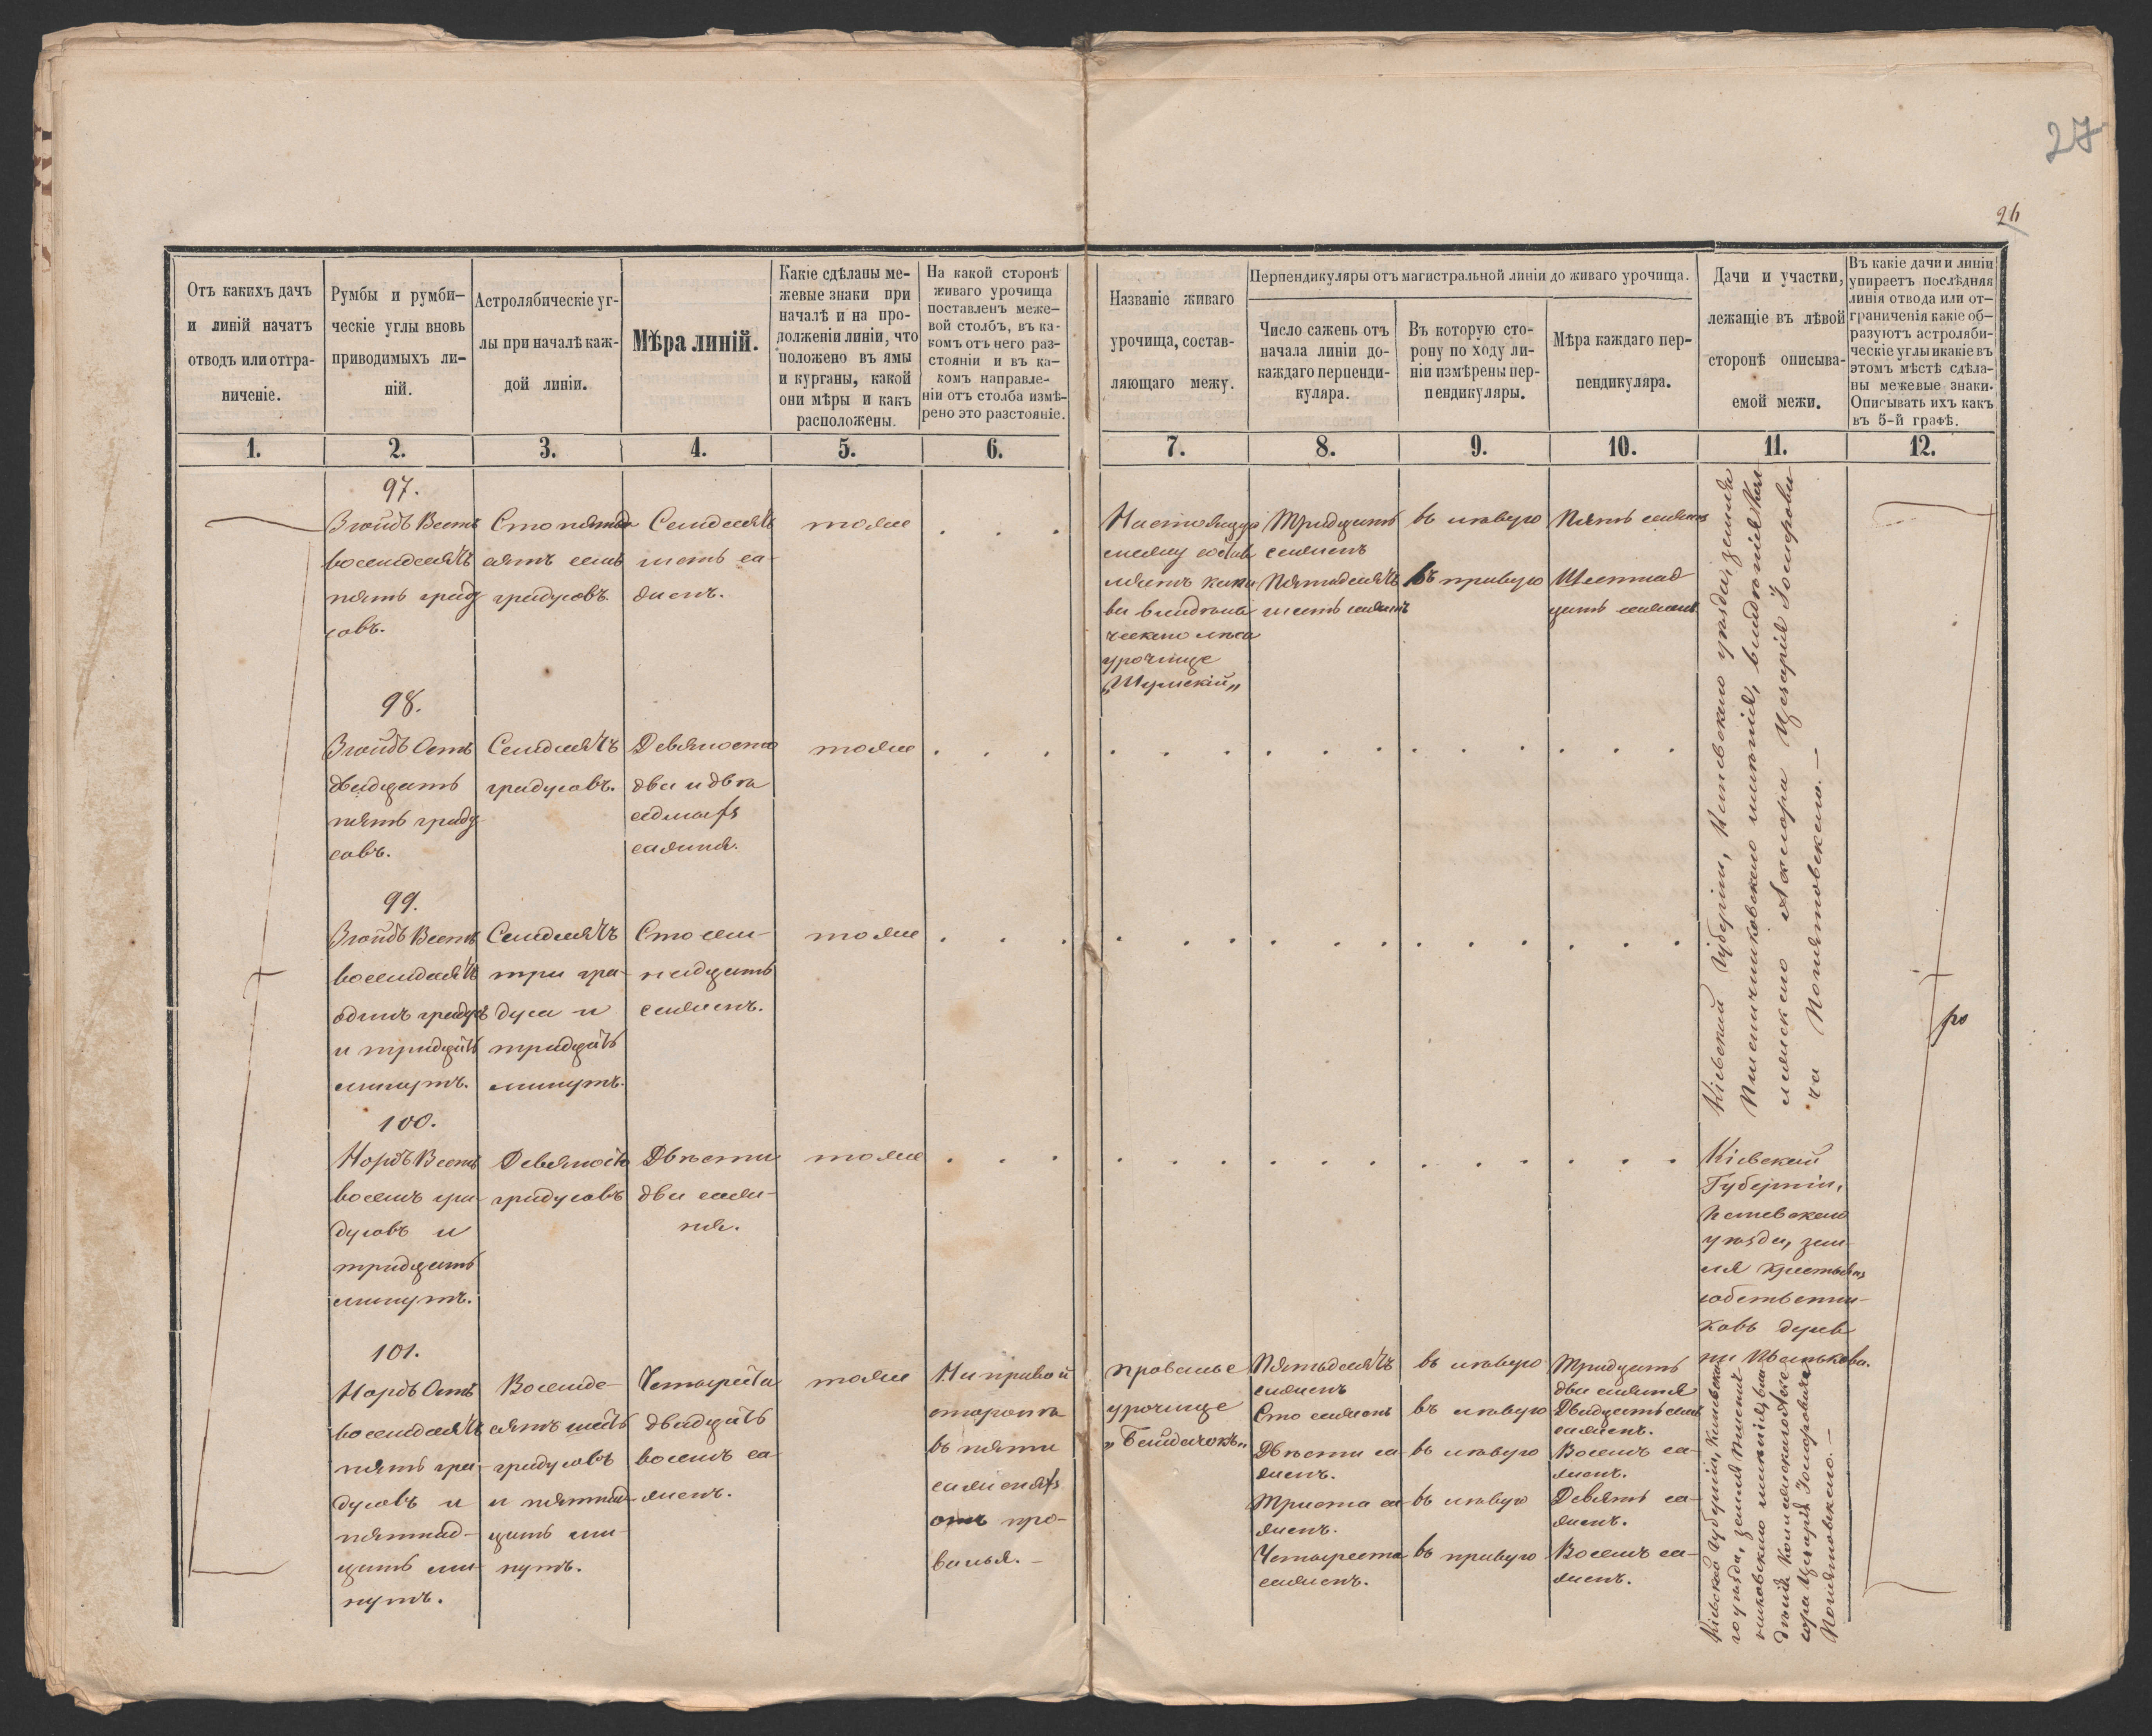 27
26
Отъ какихъ дачъ
и линій начатъ
отводъ или отгра-
ниченіе.
Румбы и румби-
ческіе углы вновь
приводимыхъ ли-
ній.
Астролябическіе уг-
лы при началѣ каж-
дой линіи.
Мѣра линій.
Какіе сдѣланы ме-
жевые знаки при
началѣ и на про-
долженіи линіи, что
положено въ ямы
и курганы, какой
они мѣры и какъ
расположены.
На какой сторонѣ
живаго урочища
поставленъ меже-
вой столбъ, въ ка-
комъ отъ него раз-
стояніи и въ ка-
комъ направле-
ніи отъ столба измѣ-
рено это разстояніе.
Названіе живаго
урочища, состав-
ляющаго межу.
Перпендикуляры отъ магистральной линіи до живаго урочища.
Число сажень отъ
начала линіи до-
каждаго перпенди-
куляра.
Въ которую сто-
рону по ходу ли-
ніи измѣрены пер-
пендикуляры.
Мѣра каждаго пер-
пендикуляра.
Дачи и участки,
лежащіе въ лѣвой
сторонѣ описыва-
емой межи.
Въ какіе дачи и линіи
упираетъ послѣдняя
линія отвода или от-
граниченія какіе об-
разуютъ астроляби-
ческіе углы и какіе въ
этомъ мѣстѣ сдѣла-
ны межевые знаки.
Описывать ихъ какъ
въ 5-й графѣ.
1. 2. 3. 4. 5. 6. 7. 8. 9. 10. 11. 12.
97.
Зюйдъ Вестъ
восемдесятъ
пять граду
совъ.
Сто пятьде
сятъ семь
градусовъ.
Семдесятъ
шесть са-
женъ.
тоже
Настоящую
межу состав
ляетъ кана
ва владѣль
ческаго лѣса
урочище
„Шумскій„
Тридцать
саженъ
Пятьдесятъ
шесть саженъ
въ лѣвую
въ правую
Пять саженъ
Шестнад
цать саженъ
98.
Зюйдъ Остъ
двадцать
пять граду
совъ.
Семдесятъ
градусовъ.
Девяносто
два и двѣ
седмыхъ
сажня.
тоже
99.
Зюйдъ Вестъ
восемдесятъ
одинъ градусъ
и тридцать
минутъ.
Семдесятъ
три гра-
дуса и
тридцать
минутъ.
Сто сем-
надцать
саженъ.
тоже
Кіевской Губерніи, Каневскаго уѣзда, земля
Пшеничниковскаго имѣнія, владѣнія Кол
лежскаго Ассесора Цезарія Іосифови
ча Понятовскаго. —
100.
Нордъ Вестъ
восемь гра-
дусовъ и
тридцать
минутъ.
Девяносто
градусовъ
Двѣсти
два саж-
ня.
тоже
Кіевской
Губерніи,
Каневскаго
уѣзда, зем-
ля крестьянъ
собственни-
ковъ дерев
ни Пѣшькова.
101.
Нордъ Остъ
восемдесятъ
пять гра-
дусовъ и
пятнад-
цать ми-
нутъ.
Восемде-
сятъ шесть
градусовъ
и пятнад-
цать ми-
нутъ.
Четыреста
двадцать
восемь са-
женъ.
тоже
На правой
сторонѣ
въ пяти
саженяхъ
отъ про-
валья. —
провалье
урочище
„Байдачокъ„
Пятьдесятъ
саженъ
Сто саженъ
Двѣсти са-
женъ.
Триста са-
женъ.
Четыреста
саженъ.
въ лѣвую
въ лѣвую
въ лѣвую
въ лѣвую
въ правую
Тридцать
два сажня
Двадцать семь
саженъ.
Восемь са-
женъ.
Девять са-
женъ.
Восемь са-
женъ.
Кіевской Губерніи, Каневска
го уѣзда, земля Пшенич-
никовскаго имѣнія, вла
дѣнія Коллежскаго Ассе
сора Цезарія Іосифовича
Понятовскаго. —